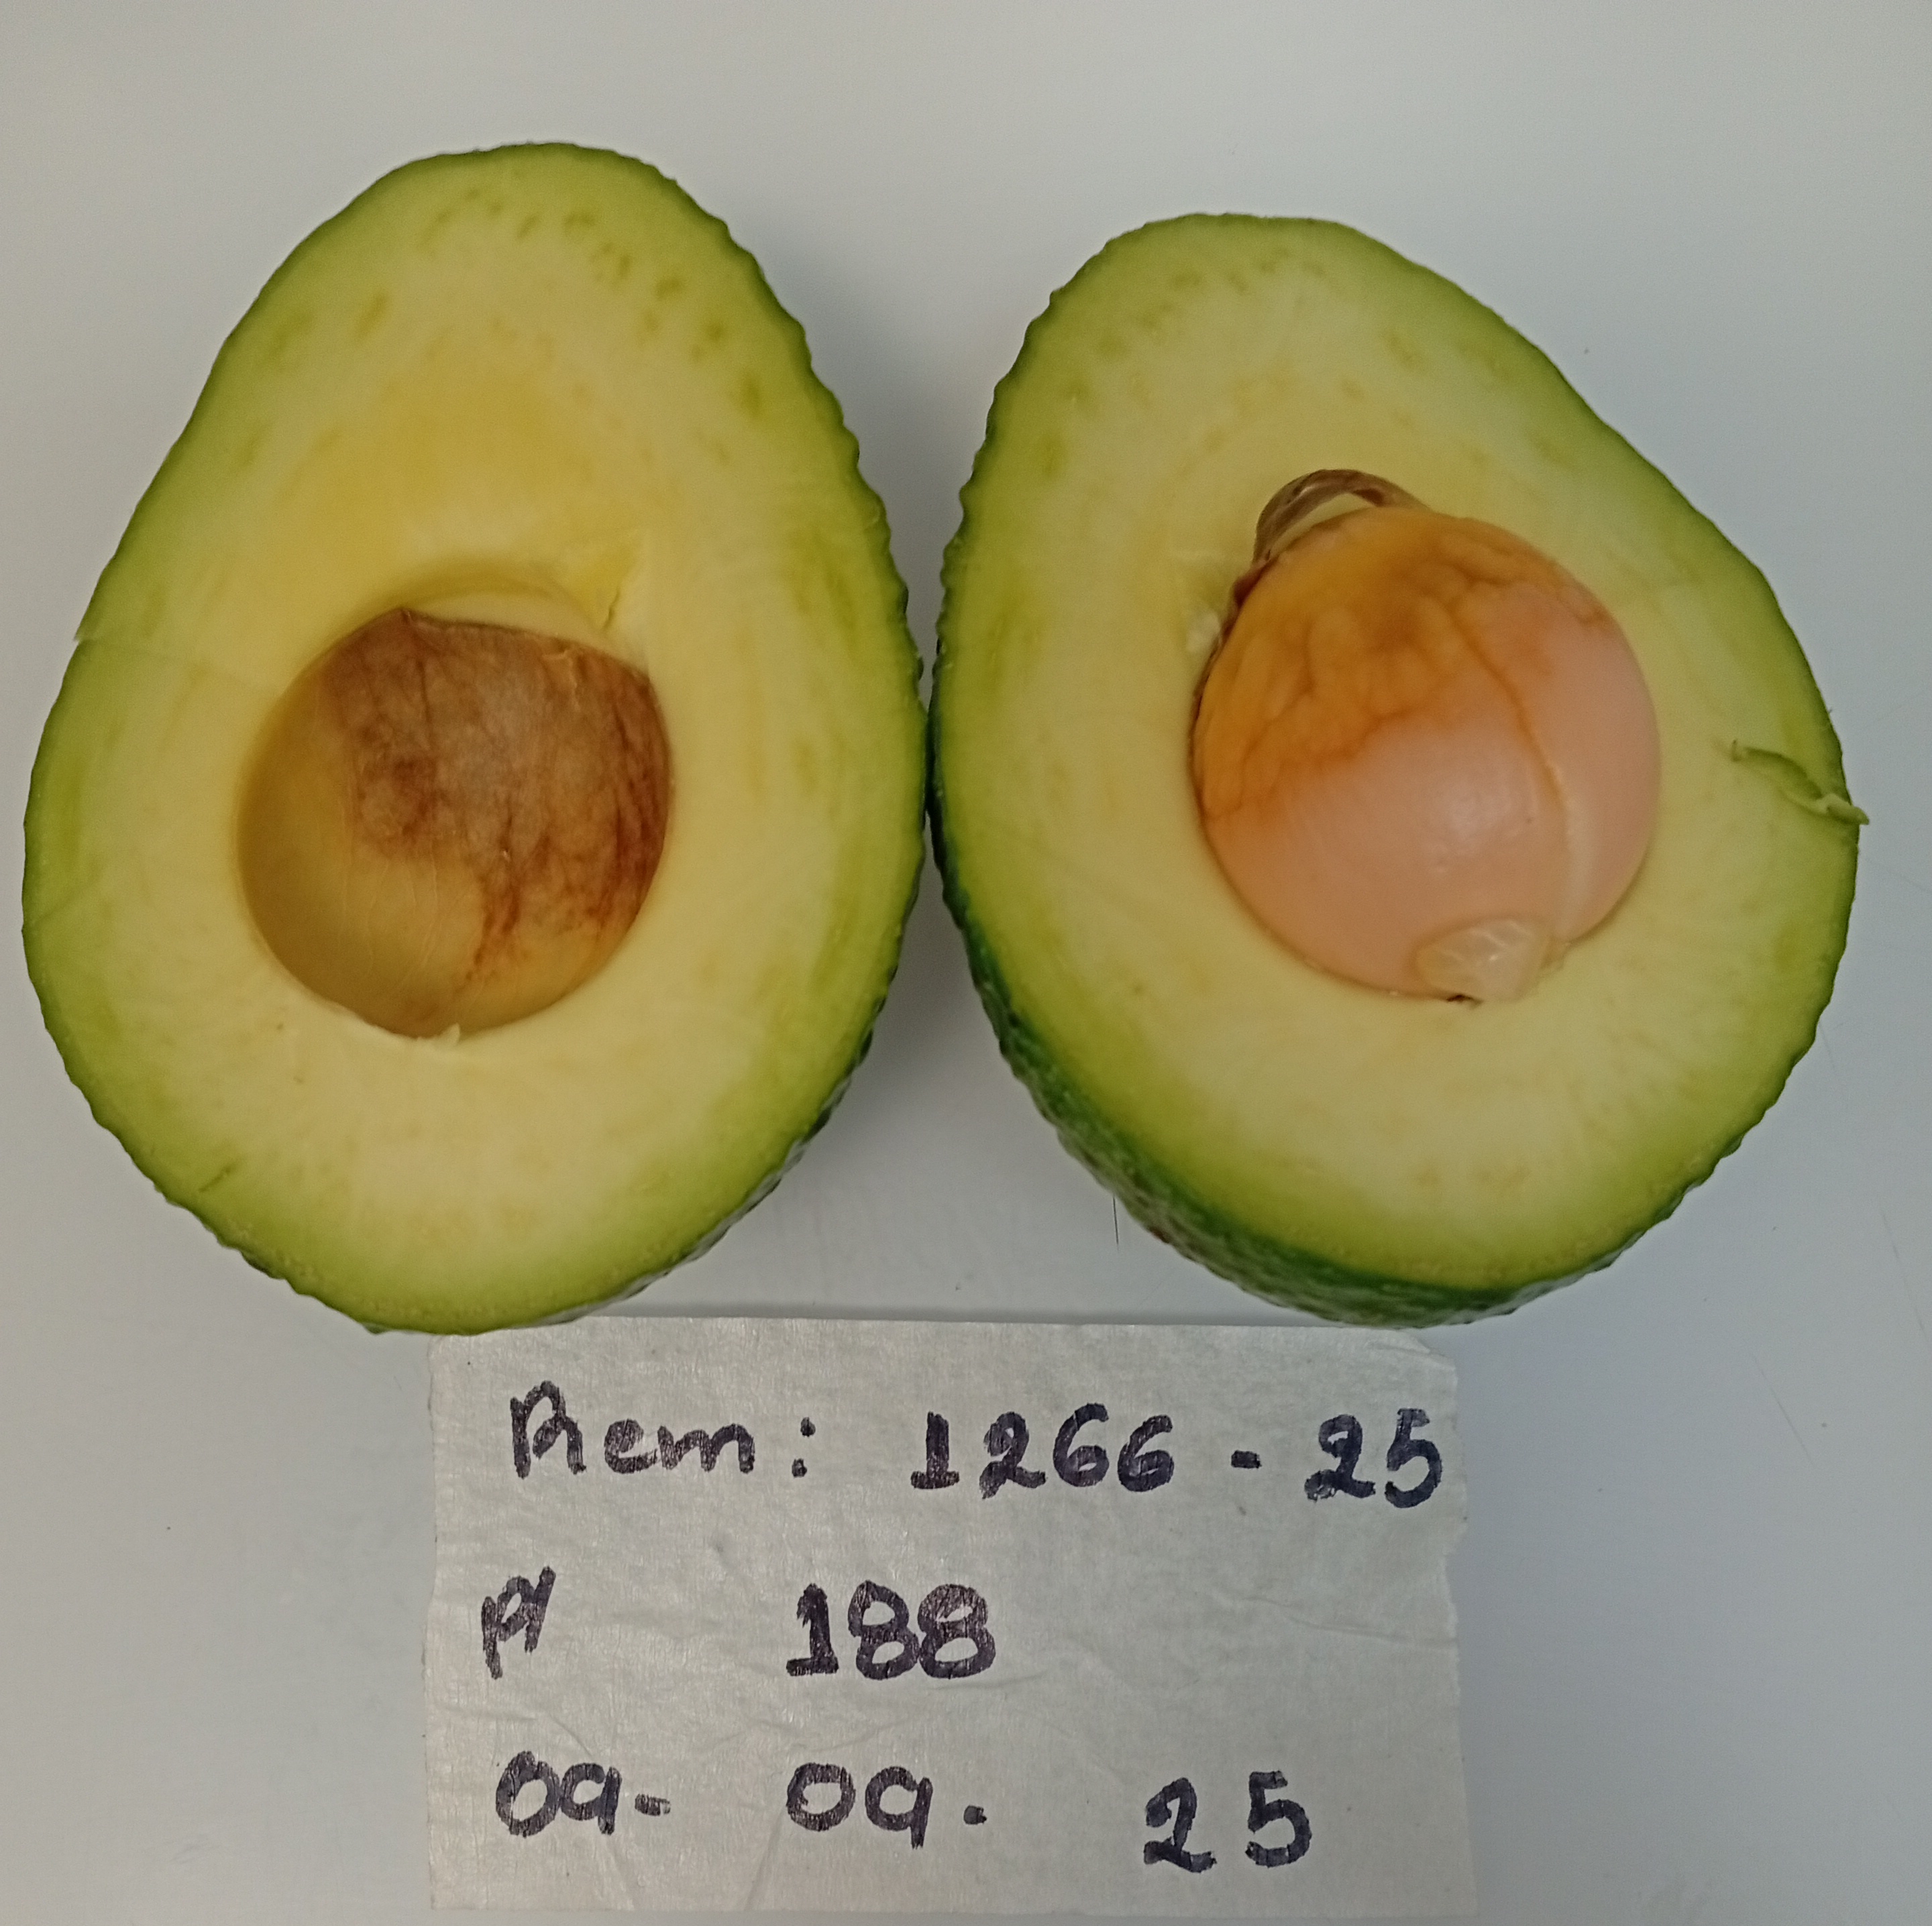 Rem: 1266 - 25
P/ 188
09- 09. 25